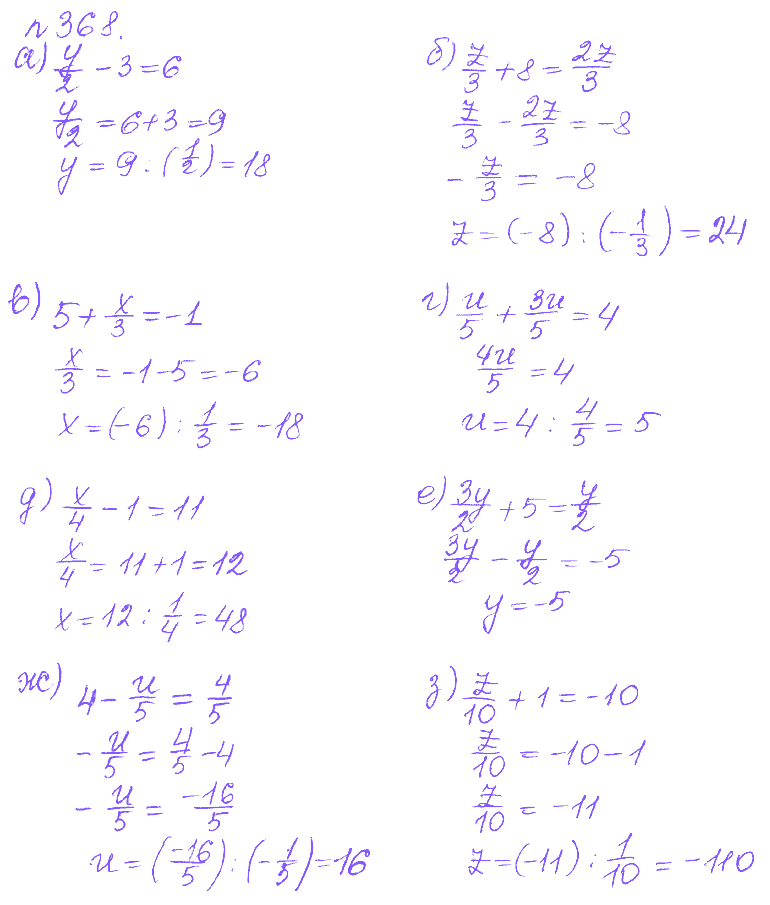 №368.
а) y/2 - 3 = 6
y/2 = 6+3 = 9
y = 9 : (1/2) = 18
б) z/3 + 8 = 2z/3
z/3 - 2z/3 = -8
- z/3 = -8
z = (-8) : (-1/3) = 24
в) 5 + x/3 = -1
x/3 = -1-5 = -6
x = (-6) : 1/3 = -18
г) u/5 + 3u/5 = 4
4u/5 = 4
u = 4 : 4/5 = 5
д) x/4 - 1 = 11
x/4 = 11+1 = 12
x = 12 : 1/4 = 48
е) 3y/2 + 5 = y/2
3y/2 - y/2 = -5
y = -5
ж) 4 - u/5 = 4/5
- u/5 = 4/5 - 4
- u/5 = -16/5
u = (-16/5) : (-1/5) = 16
з) z/10 + 1 = -10
z/10 = -10-1
z/10 = -11
z = (-11) : 1/10 = -110